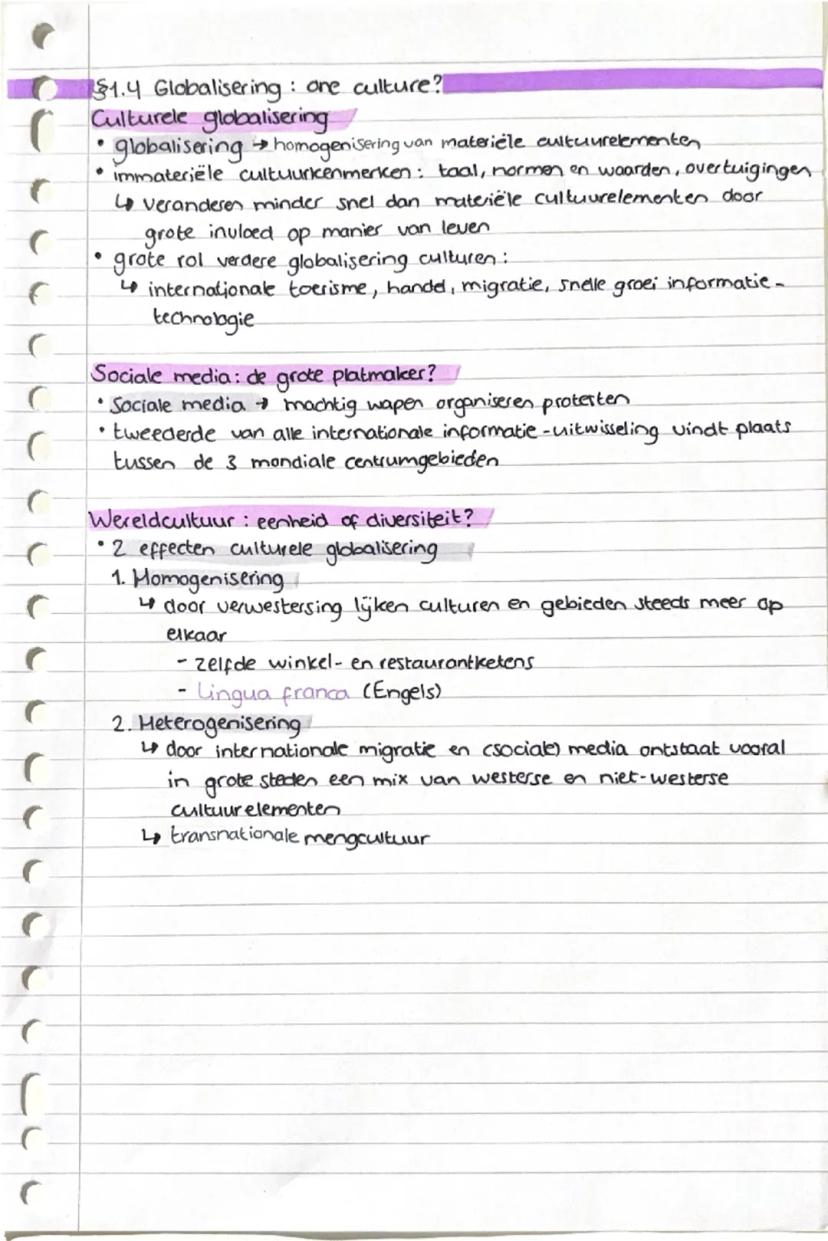 §1.4 Globalisering : one culture?
Culturele globalisering
• globalisering → homogenisering van materiële cultuurelementen
• immateriële cultuurkenmerken : taal, normen en waarden, overtuigingen
↳ veranderen minder snel dan materiële cultuurelementen door
grote invloed op manier van leven
• grote rol verdere globalisering culturen :
↳ internationale toerisme, handel, migratie, snelle groei informatie-
technologie
Sociale media : de grote platmaker?
• Sociale media → machtig wapen organiseren protesten
• tweederde van alle internationale informatie-uitwisseling vindt plaats
tussen de 3 mondiale centrumgebieden
Wereldcultuur : eenheid of diversiteit?
• 2 effecten culturele globalisering
1. Homogenisering
↳ door verwestersing lijken culturen en gebieden steeds meer op
elkaar
- zelfde winkel- en restaurantketens
- Lingua franca (Engels)
2. Heterogenisering
↳ door internationale migratie en (sociale) media ontstaat vooral
in grote steden een mix van westerse en niet-westerse
cultuurelementen
↳ transnationale mengcultuur